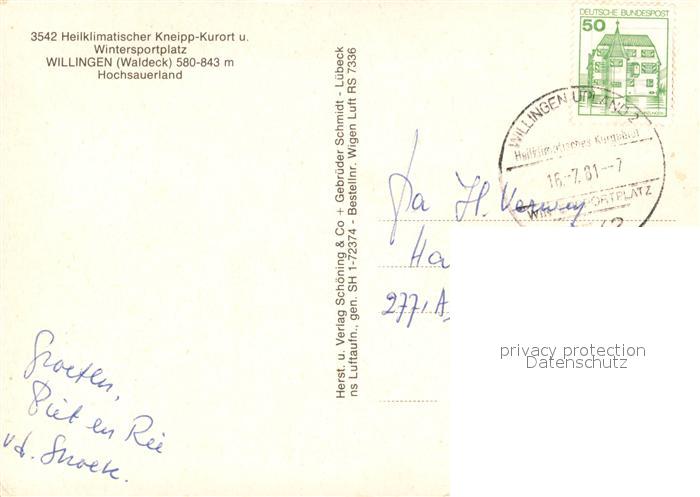 3542 Heilklimatischer Kneipp-Kurort u.
Wintersportplatz
WILLINGEN (Waldeck) 580-843 m
Hochsauerland
Herst. u. Verlag Schöning & Co + Gebrüder Schmidt - Lübeck
ns Luftaufn., gen. SH 1-72374 - Bestellnr. Wigen Luft RS 7336
DEUTSCHE BUNDESPOST
50
WILLINGEN UPLAND 2
Heilklimatisches Kurgebiet
16.-7.81--7
WINTERSPORTPLATZ
Fa H.
Ha
277, A
privacy protection
Datenschutz
Groeten,
Piet en Rie
v.d. Snoek.